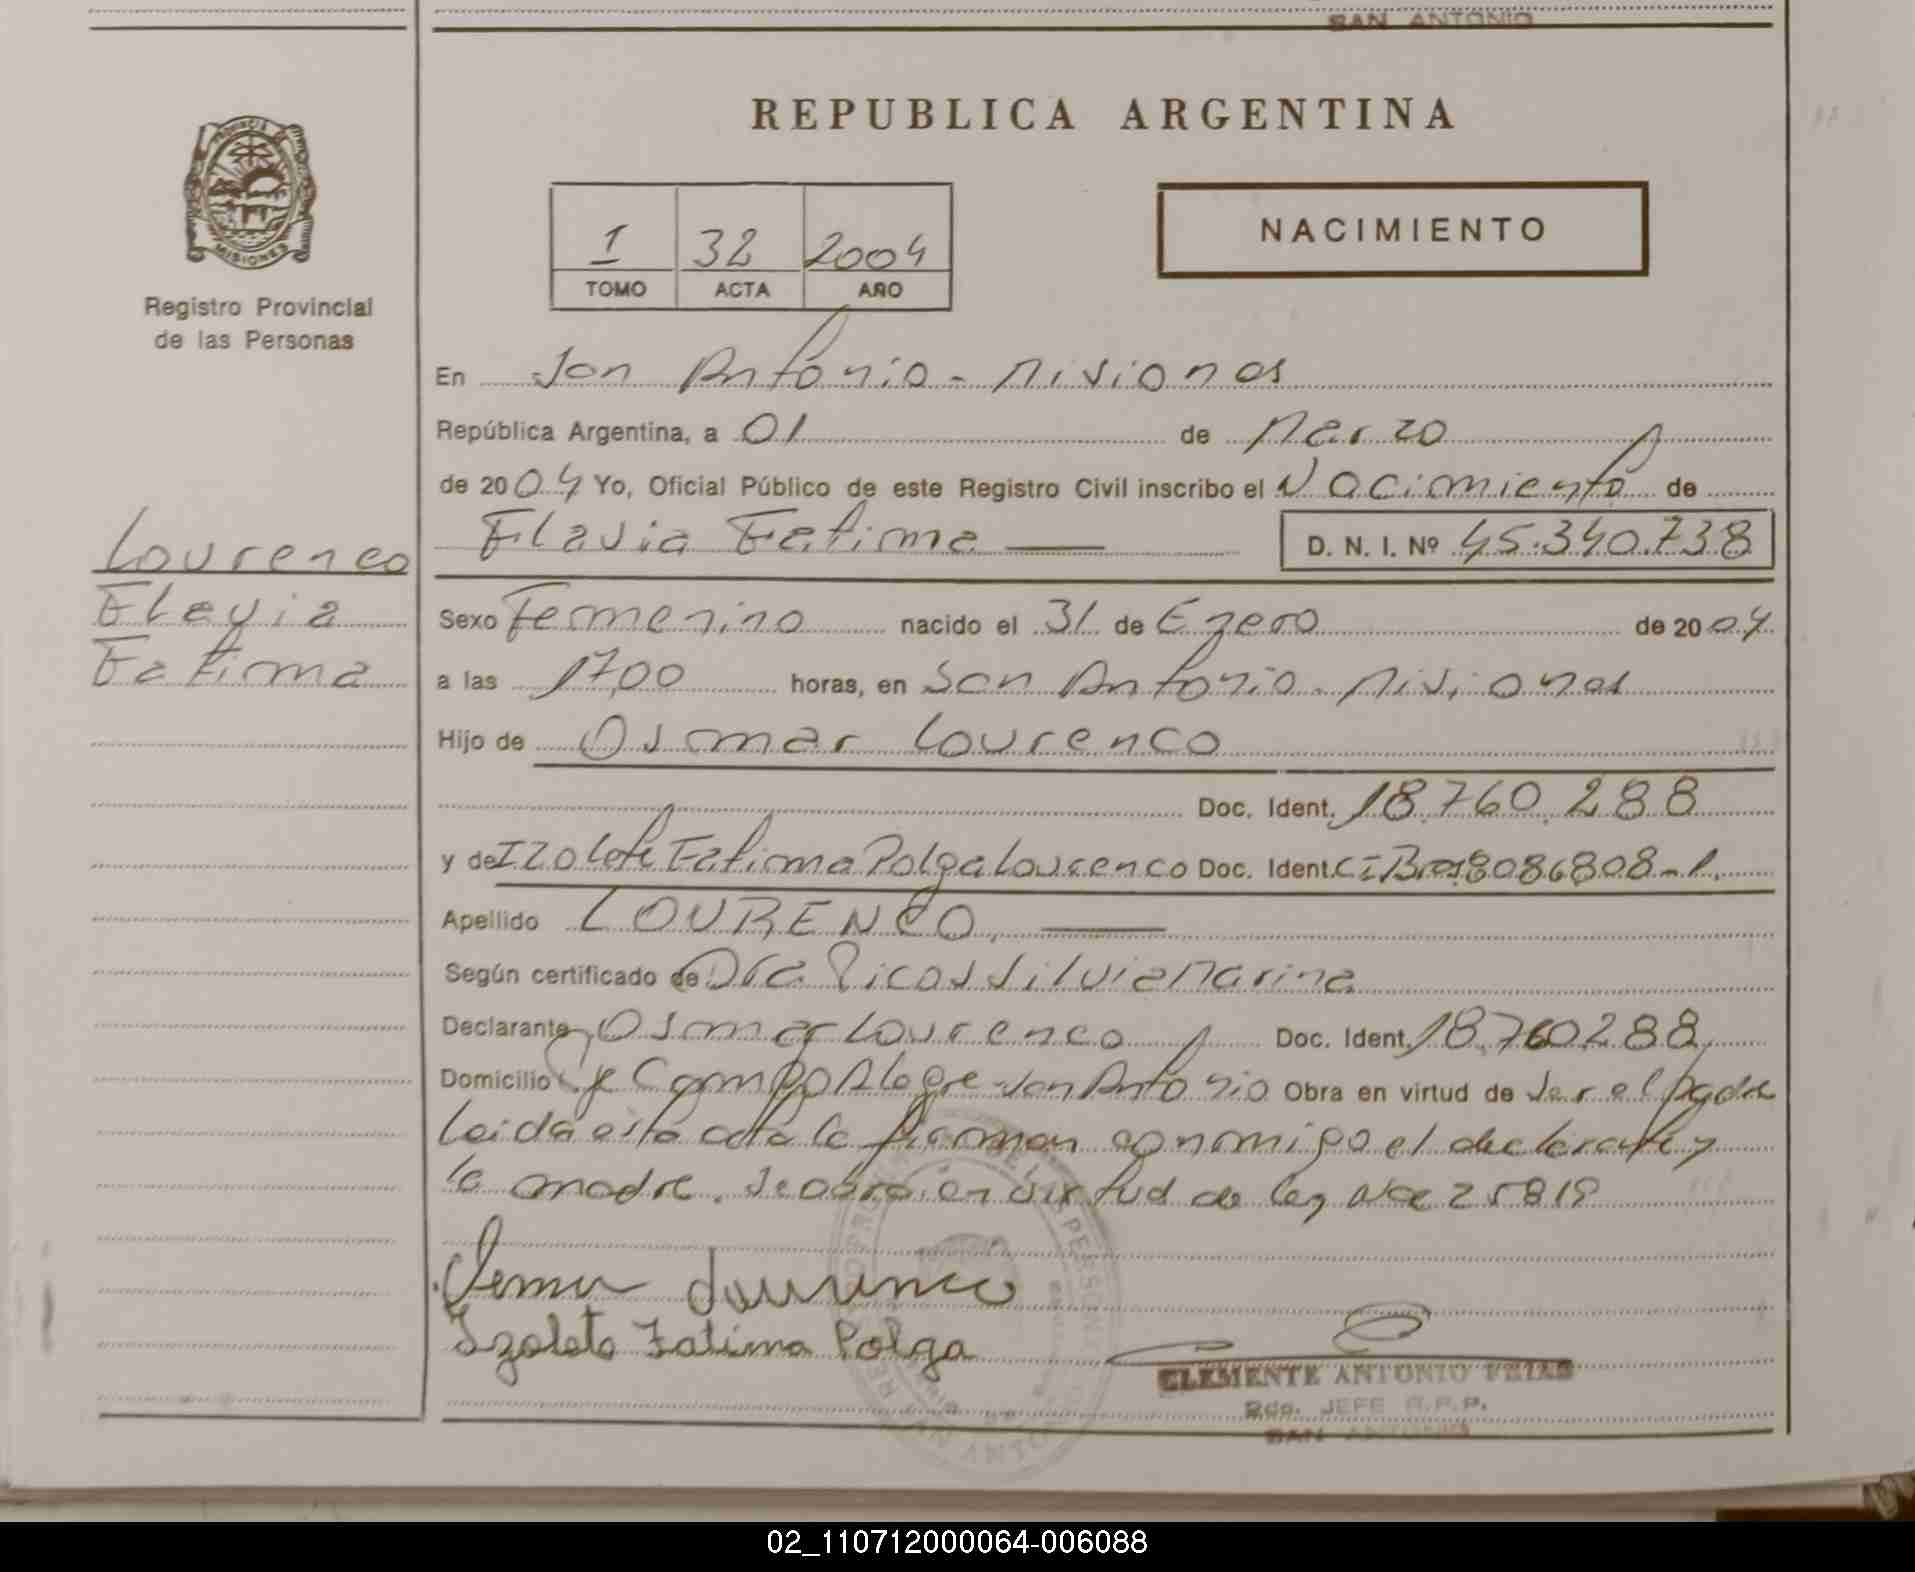 SAN ANTONIO
REPUBLICA ARGENTINA
PROVINCIA DE
MISIONES
Registro Provincial
de las Personas
1 32 2004
TOMO ACTA AÑO
NACIMIENTO
En San Antonio - Misiones
República Argentina, a 01 de Marzo
de 2004 Yo, Oficial Público de este Registro Civil inscribo el Nacimiento de
Flavia Fatima — D. N. I. Nº 45.340.738
Lourenco
Flavia
Fatima
Sexo Femenino nacido el 31 de Enero de 2004
a las 17,00 horas, en San Antonio - Misiones
Hijo de Osmar Lourenco
Doc. Ident. 18.760.288
y de Izolete Fatima Polga Lourenco Doc. Ident. CI Bras 8086808-1.
Apellido LOURENCO. —
Según certificado de Dra Picoss Silvia Marina
Declarante Osmar Lourenco Doc. Ident. 18.760.288,
Domicilio Campo Alegre - San Antonio Obra en virtud de ser el padre
Leida esta acta la firman conmigo el declarante y
la madre. Se obro en virtud de ley Nro 25819
Osmar Lourenco
Izolete Fatima Polga
CLEMENTE ANTONIO FRIAS
JEFE R.P.P.
SAN ANTONIO
02_110712000064-006088